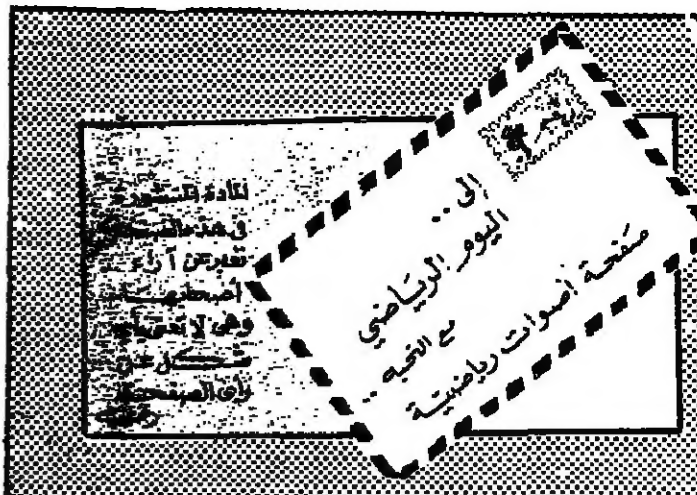 المادة المنشورة
في هذه الصفحة
تعبر عن آراء
أصحابها
وهي لا تعني بأي
شكل عن
رأي الصفحة
إلى ..
اليوم الرياضي
مع التحية ..
صفحة أصوات رياضية